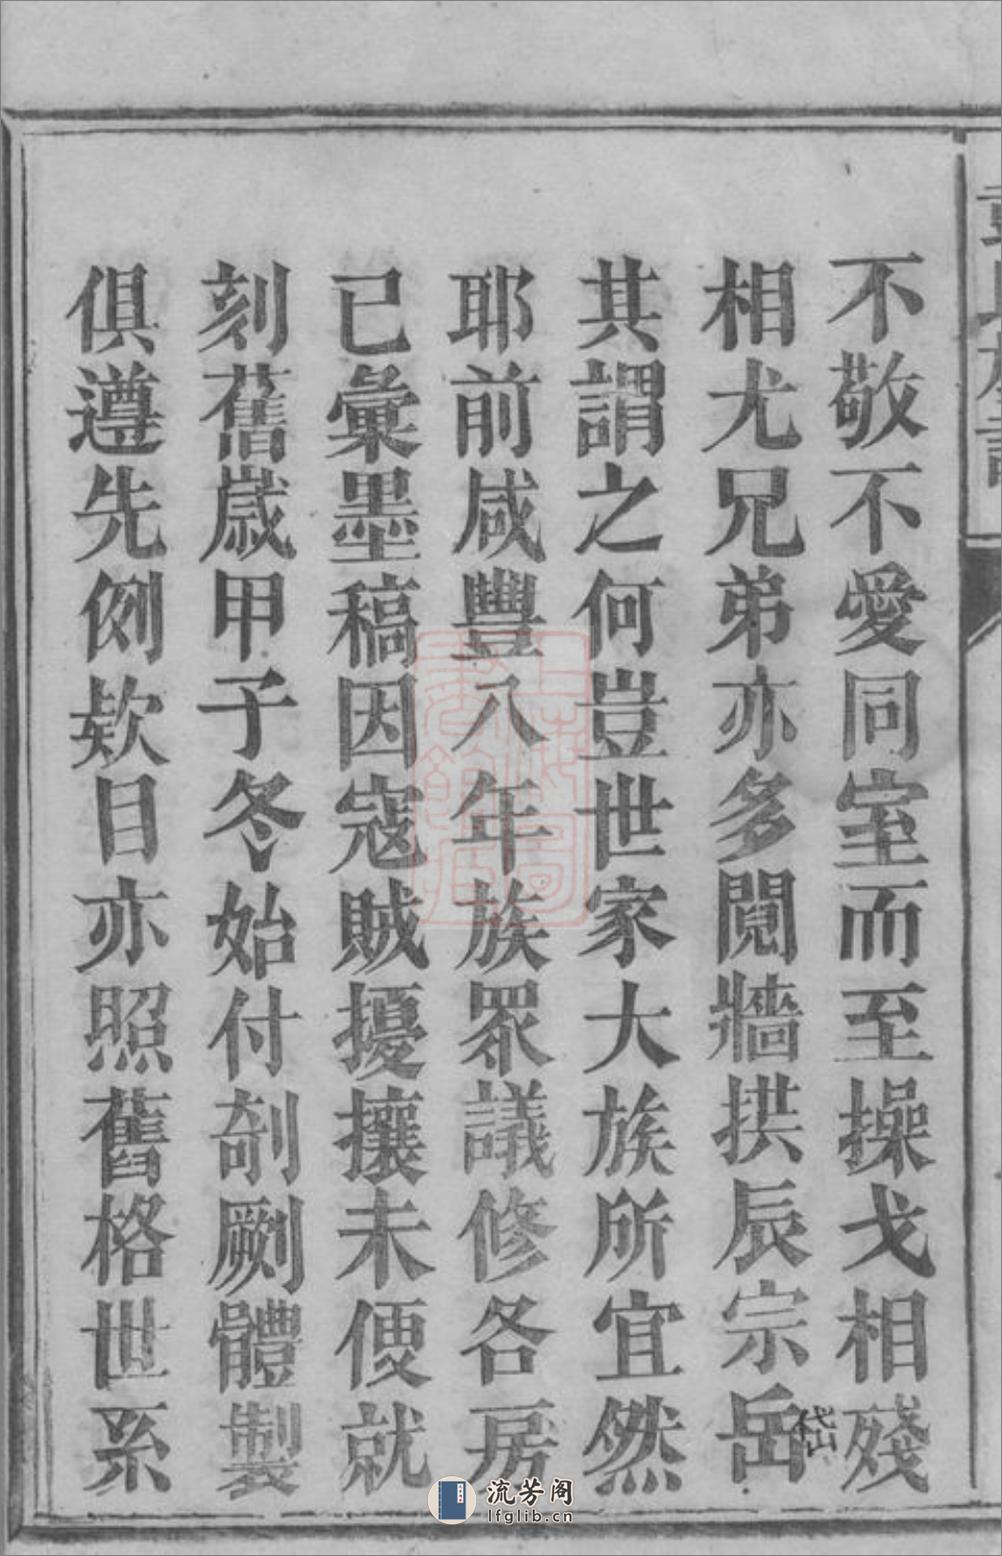 不敬不愛同室而至操戈相殘
相尤兄弟亦多閱牆拱辰宗岳
岱
其謂之何豈世家大族所宜然
耶前咸豐八年族眾議修各房
已彙墨稿因寇賊擾攘未便就
刻舊歲甲子冬始付剞劂體製
俱遵先例欵目亦照舊格世系
氏族譜
流芳阁
lfglib.cn